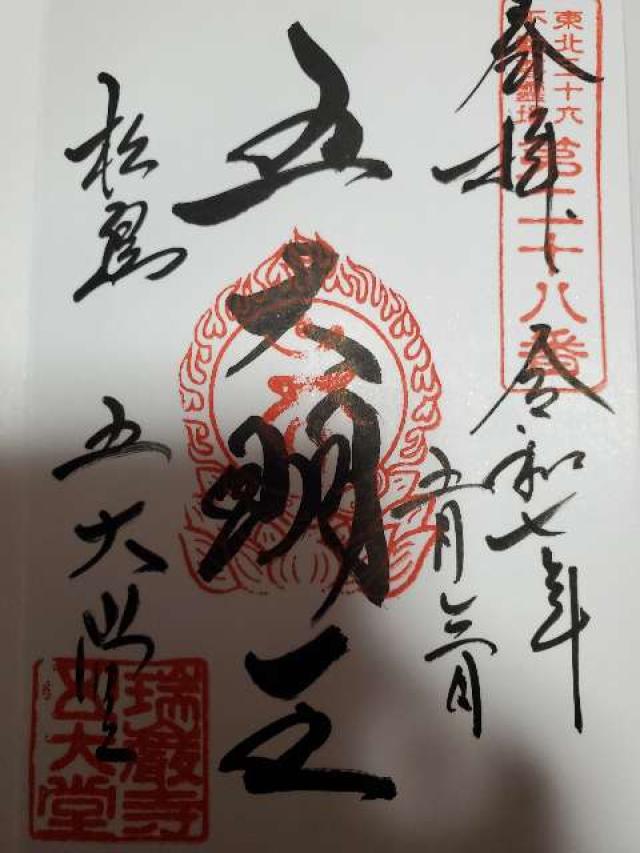 東北三十六
不動尊霊場
第二十八番
奉拝
令和七年
五月六日
五大明王
松島
五大堂
瑞巌寺
五大堂